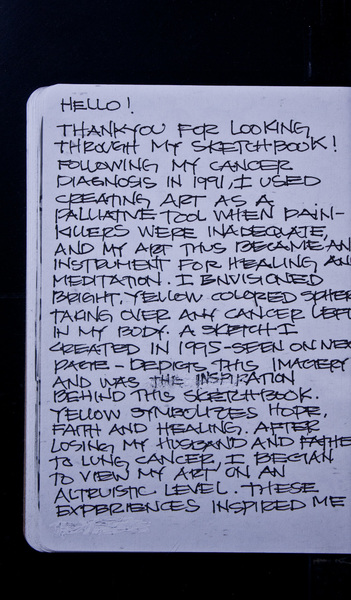 HELLO!
THANKYOU FOR LOOKING
THROUGH MY SKETCHBOOK!
FOLLOWING MY CANCER
DIAGNOSIS IN 1991, I USED
CREATING ART AS A
PALLIATIVE TOOL WHEN PAIN-
KILLERS WERE INADEQUATE,
AND MY ART THUS BECAME AN
INSTRUMENT FOR HEALING AND
MEDITATION. I ENVISIONED
BRIGHT, YELLOW COLORED SPHER
TAKING OVER ANY CANCER LEFT
IN MY BODY. A SKETCH I
CREATED IN 1995-SEEN ON NEX
PAGE - DEPICTS THIS IMAGERY
AND WAS THE INSPIRATION
BEHIND THIS SKETCHBOOK.
YELLOW SYMBOLIZES HOPE,
FAITH AND HEALING. AFTER
LOSING MY HUSBAND AND FATHE
TO LUNG CANCER, I BEGAN
TO VIEW MY ART ON AN
ALTRUISTIC LEVEL. THESE
EXPERIENCES INSPIRED ME